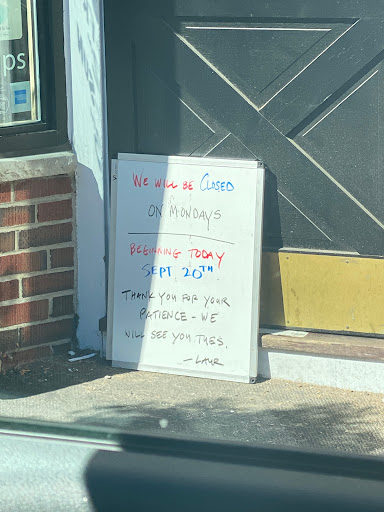 ps
WE WILL BE CLOSED
ON MONDAYS
BEGINNING TODAY
SEPT 20TH
THANK YOU FOR YOUR
PATIENCE - WE
WILL SEE YOU TUES.